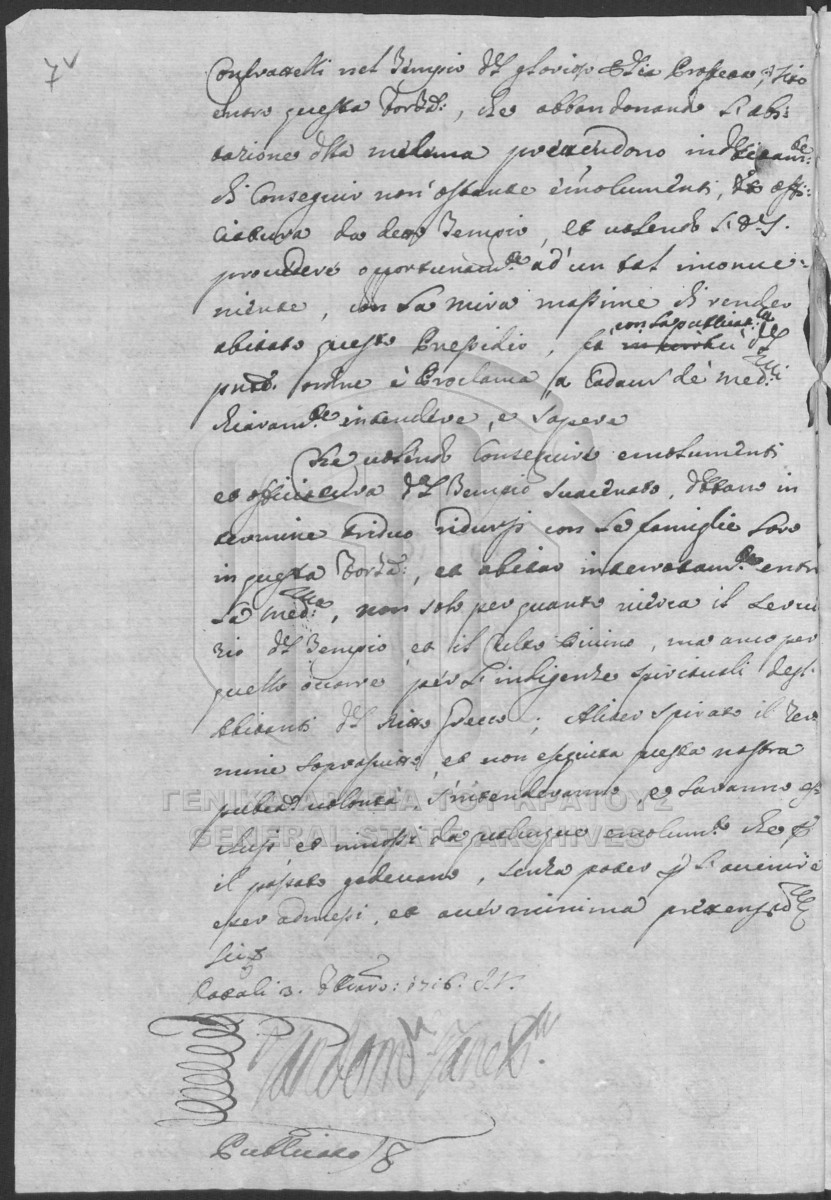 7v
Confratelli nel Tempio del glorioso Elia Profeta, sito
entro questa Fortza:, che abbandonando l'abi:
tazione della medema pretendono indebitamte:
di Conseguir non ostante emolumenti, et offi:
ciatura da detto Tempio, et volendo S. S.
provedere opportunamte ad un tal inconve:
niente, con la mira massime di render
abitato questo Presidio, fà con la publicatne del
pnte. ordine è Proclama, a cadaun de medmi
chiaramte intendere, e sapere
Che volendo Conseguire emolumenti
et officiatura del Tempio sudetto, debbano in
termine ridursi con le famiglie loro
in questa Fortza:, et abitar intieramte entro
la medma, non solo per quanto ricerca il servi
zio del Tempio et il Culto Divino, ma anco per
quello occorre per l'indigenze spirituali degl'
Abitanti del Ritto Greco; Aliter spirato il ter
mine soprascritto, et non eseguita questa nostra
publica volontà, s'intenderanno, et saranno es
clusi et rimossi da qualunque emolumto che p
il passato godevano, senza poter p l'avenire
esser admessi, et aver minima pretensione
Sic
1716. S.V.
Publicato
ΓΕΝΙΚΑ ΑΡΧΕΙΑ ΤΟΥ ΚΡΑΤΟΥΣ
GENERAL STATE ARCHIVES